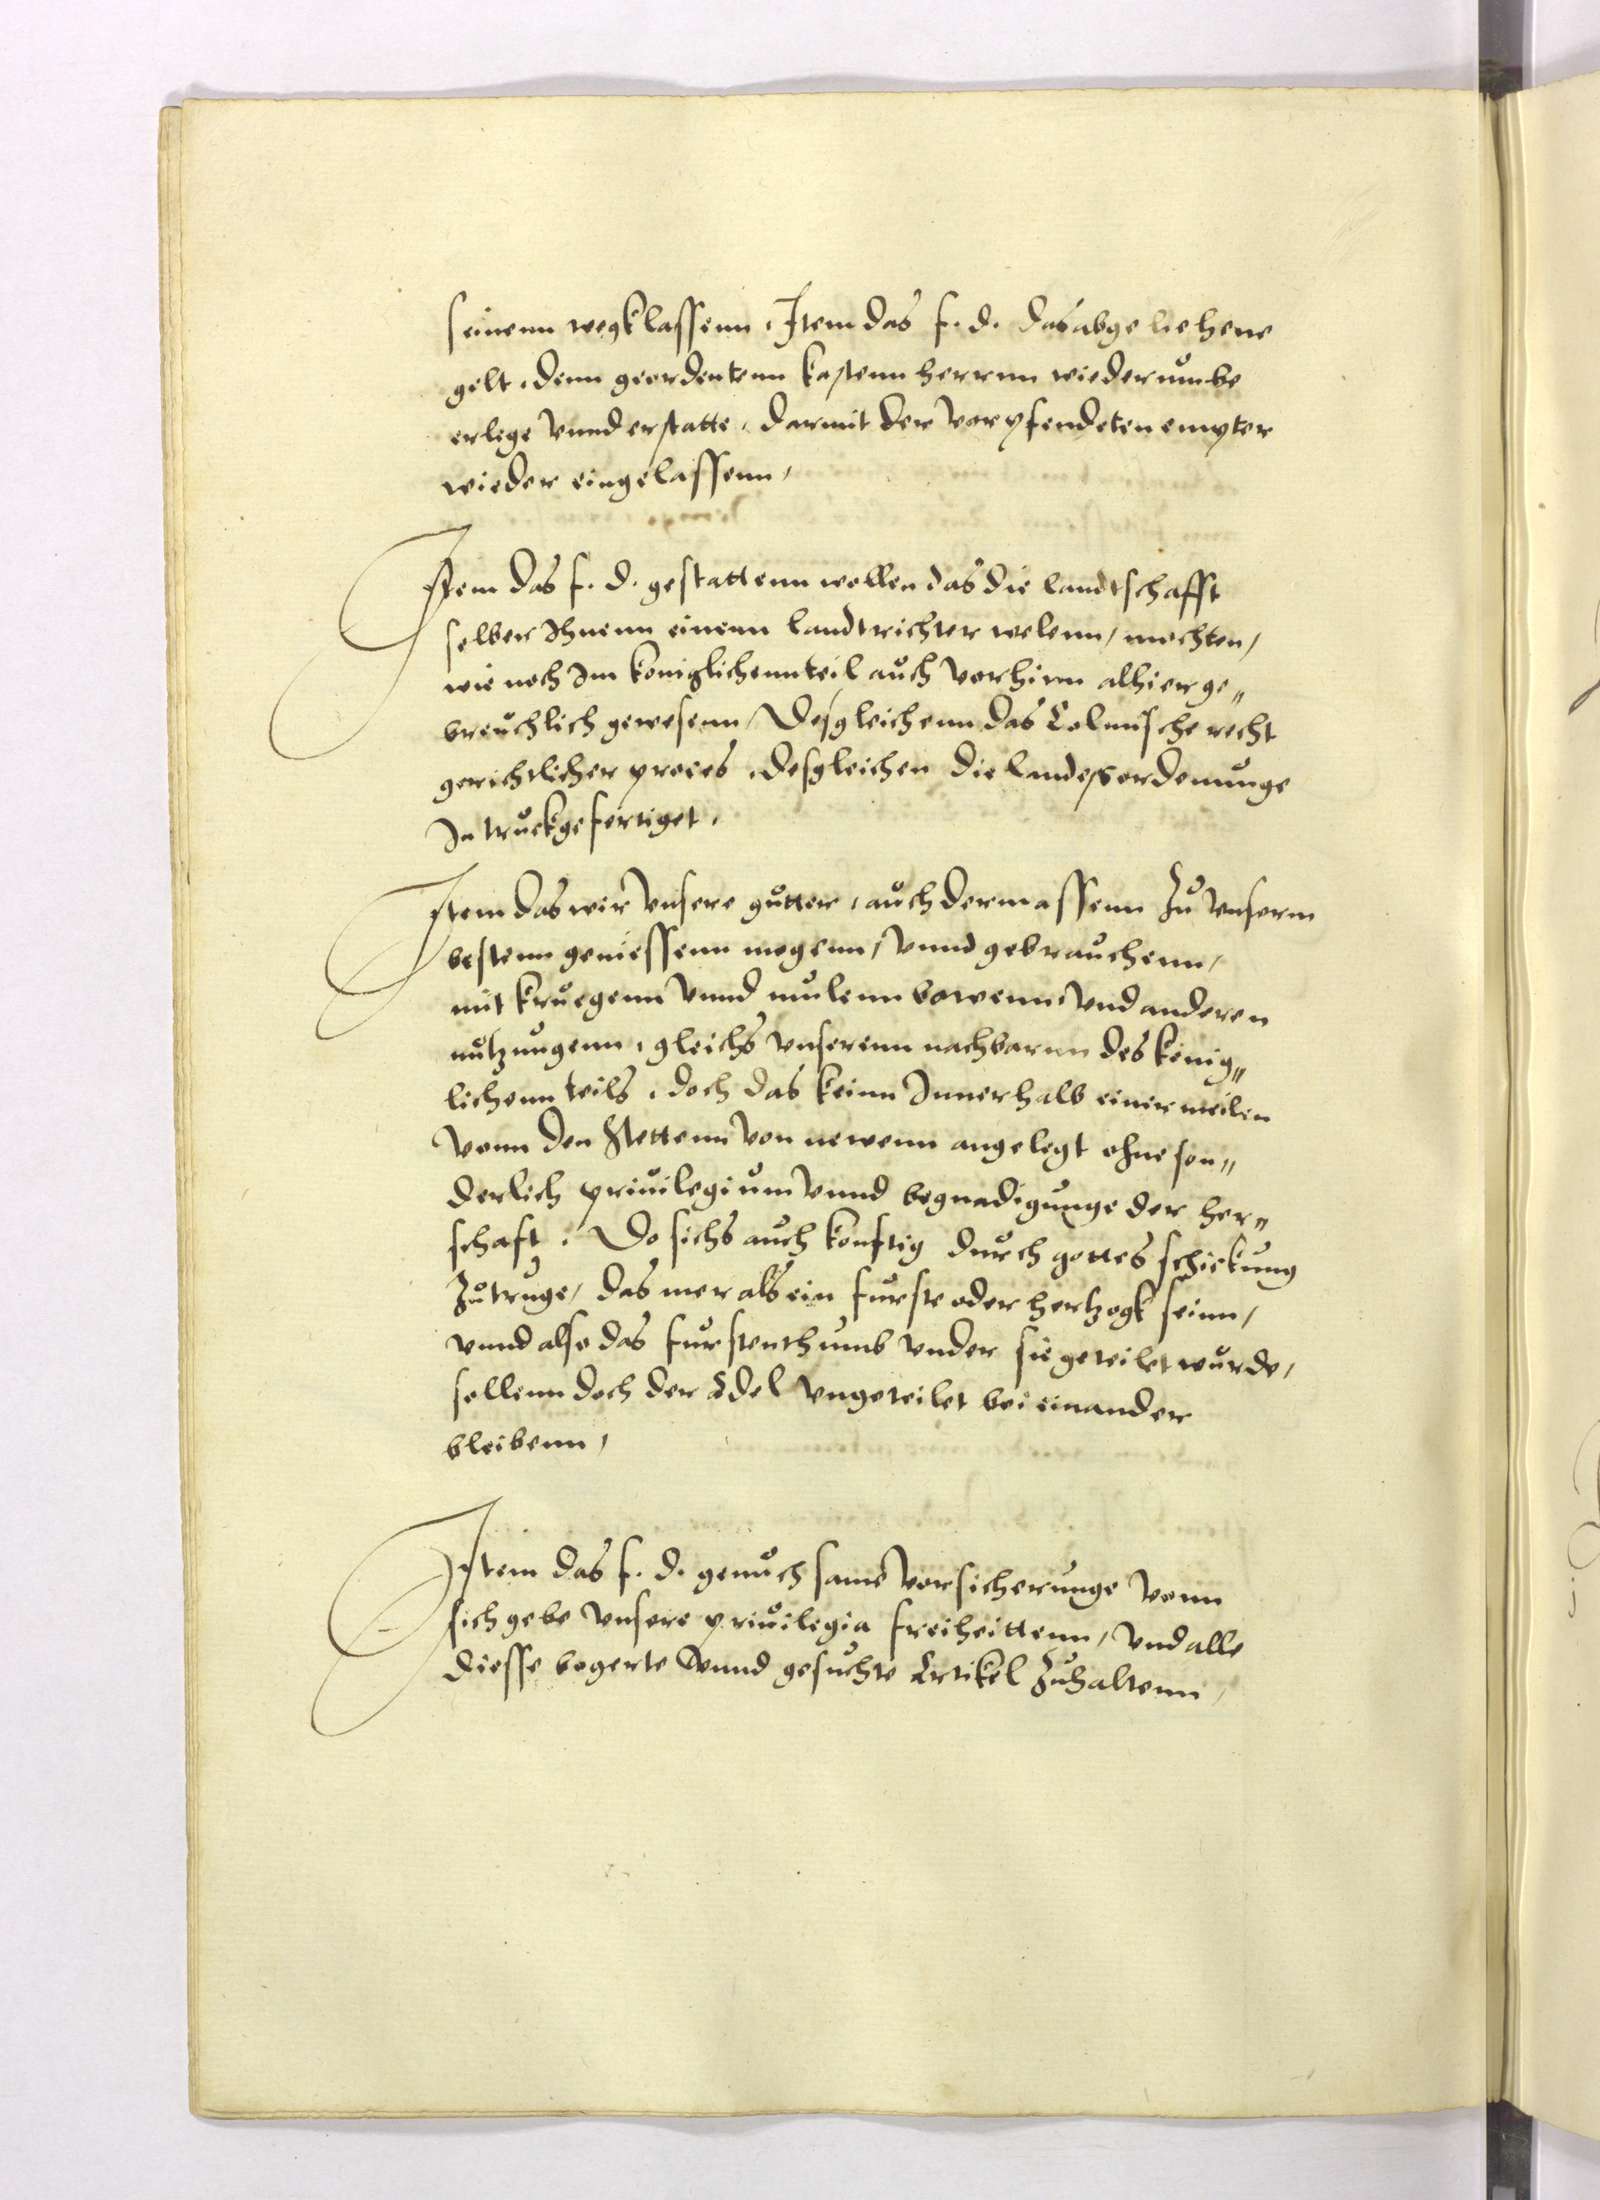 seinenn wegklassenn, Item das f. d. das abgeliehene
gelt, denn geordentenn kastenn herrnn wiederumbe
erlege vnnd erstatte, darmit der vorpfendeten empter
wieder eingelassenn,
Item das f. d. gestattenn wollen das die landtschafft
selber Ihnenn einenn landtrichter welenn, mochten,
wie noch Im koniglichenn teil auch vorhinn alhier ge„
breuchlich gewesenn, Desgleichenn das Colmische recht
gerichtlicher proces, desgleichen die landesordenunge
In truckgefertiget,
Item das wir vnsere gutter, auch dermassenn Zu vnserm
bestenn geniessenn mogenn, vnnd gebrauchenn,
mit kruegenn vnnd mulenn bowenn, vnd anderen
nutzungenn, gleichs vnserenn nachbarnn des konig„
lichenn teils, doch das keinn Innerhalb einer meilen
vonn den Stettenn von newenn angelegt ohne son„
derlich priuilegium vnnd begnadigunge der her„
schaft, Do sichs auch konftig durch gottes schickung
Zutruge, das mer als ein furste oder hertzogk seinn,
vnnd also das furstenthumb vnder sie geteilet wurde,
sollenn doch der Adel vngeteilet bei einander
bleibenn,
Item das f. d. genuchsame vorsicherunge vonn
sich gebe vnsere priuilegia freiheittenn, vnd alle
diesse begerte vnnd gesuchte Artikel Zuhaltenn,